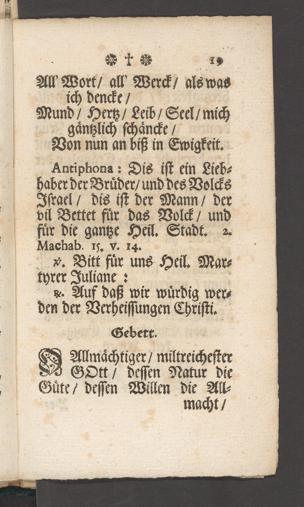 ❉ † ❉ 19
All Wort / all' Werck / als was
ich dencke /
Mund / Hertz / Leib / Seel / mich
gäntzlich schäncke /
Von nun an biß in Ewigkeit.
Antiphona: Dis ist ein Lieb-
haber der Brüder / und des Volcks
Israel / dis ist der Mann / der
vil Bettet für das Volck / und
für die gantze Heil. Stadt. 2.
Machab. 15. v. 14.
℣. Bitt für uns Heil. Mar-
tyrer Juliane :
℟. Auf daß wir würdig wer-
den der Verheissungen Christi.
Gebett.
O Allmächtiger / miltreichester
GOtt / dessen Natur die
Güte / dessen Willen die All-
macht /